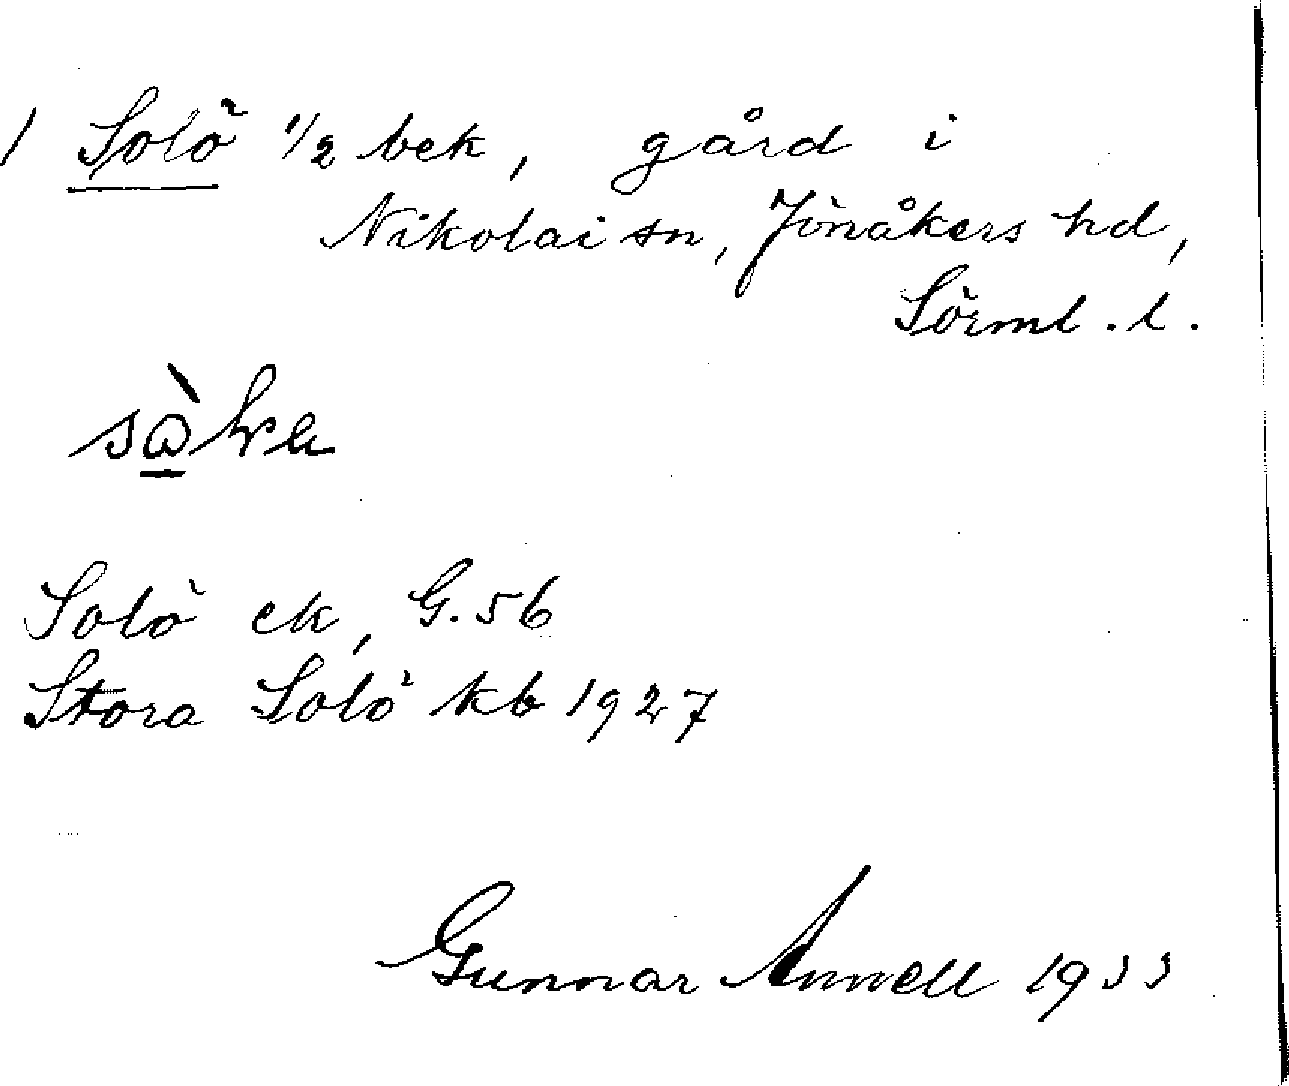 1 Solö 1/2 bek, gård i
Nikolai sn, Jönåkers hd,
Sörml. l.
Solö ek, G. 56
Stora Solö kb 1927
Gunnar Annell 1933